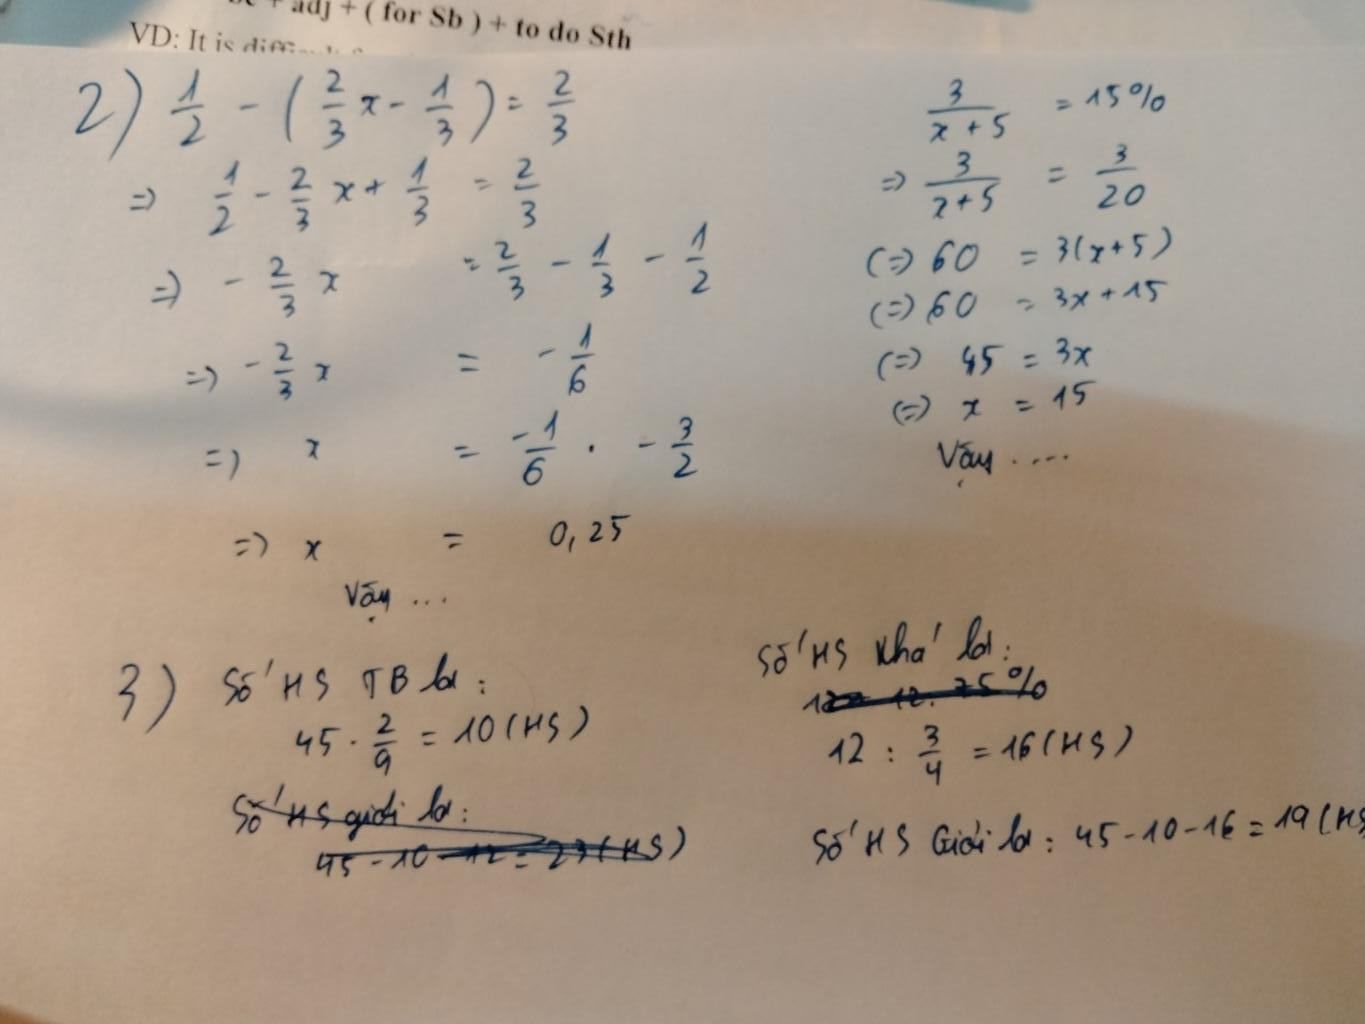 be + adj + ( for Sb ) + to do Sth
VD: It is
2) 1/2 - (2/3 x - 1/3) = 2/3
=> 1/2 - 2/3 x + 1/3 = 2/3
=> - 2/3 x = 2/3 - 1/3 - 1/2
=> - 2/3 x = - 1/6
=> x = -1/6 . - 3/2
=> x = 0,25
Vậy ...
3/(x + 5) = 15%
=> 3/(x+5) = 3/20
(=) 60 = 3(x+5)
(=) 60 = 3x + 15
(=) 45 = 3x
(=) x = 15
Vậy ....
3) Số HS TB là :
45 . 2/9 = 10 (HS)
Số HS giỏi là :
45 - 10 - 12 = 23 (HS)
Số HS Khá là :
12. 75%
12 : 3/4 = 16 (HS)
Số HS Giỏi là : 45 - 10 - 16 = 19 (HS